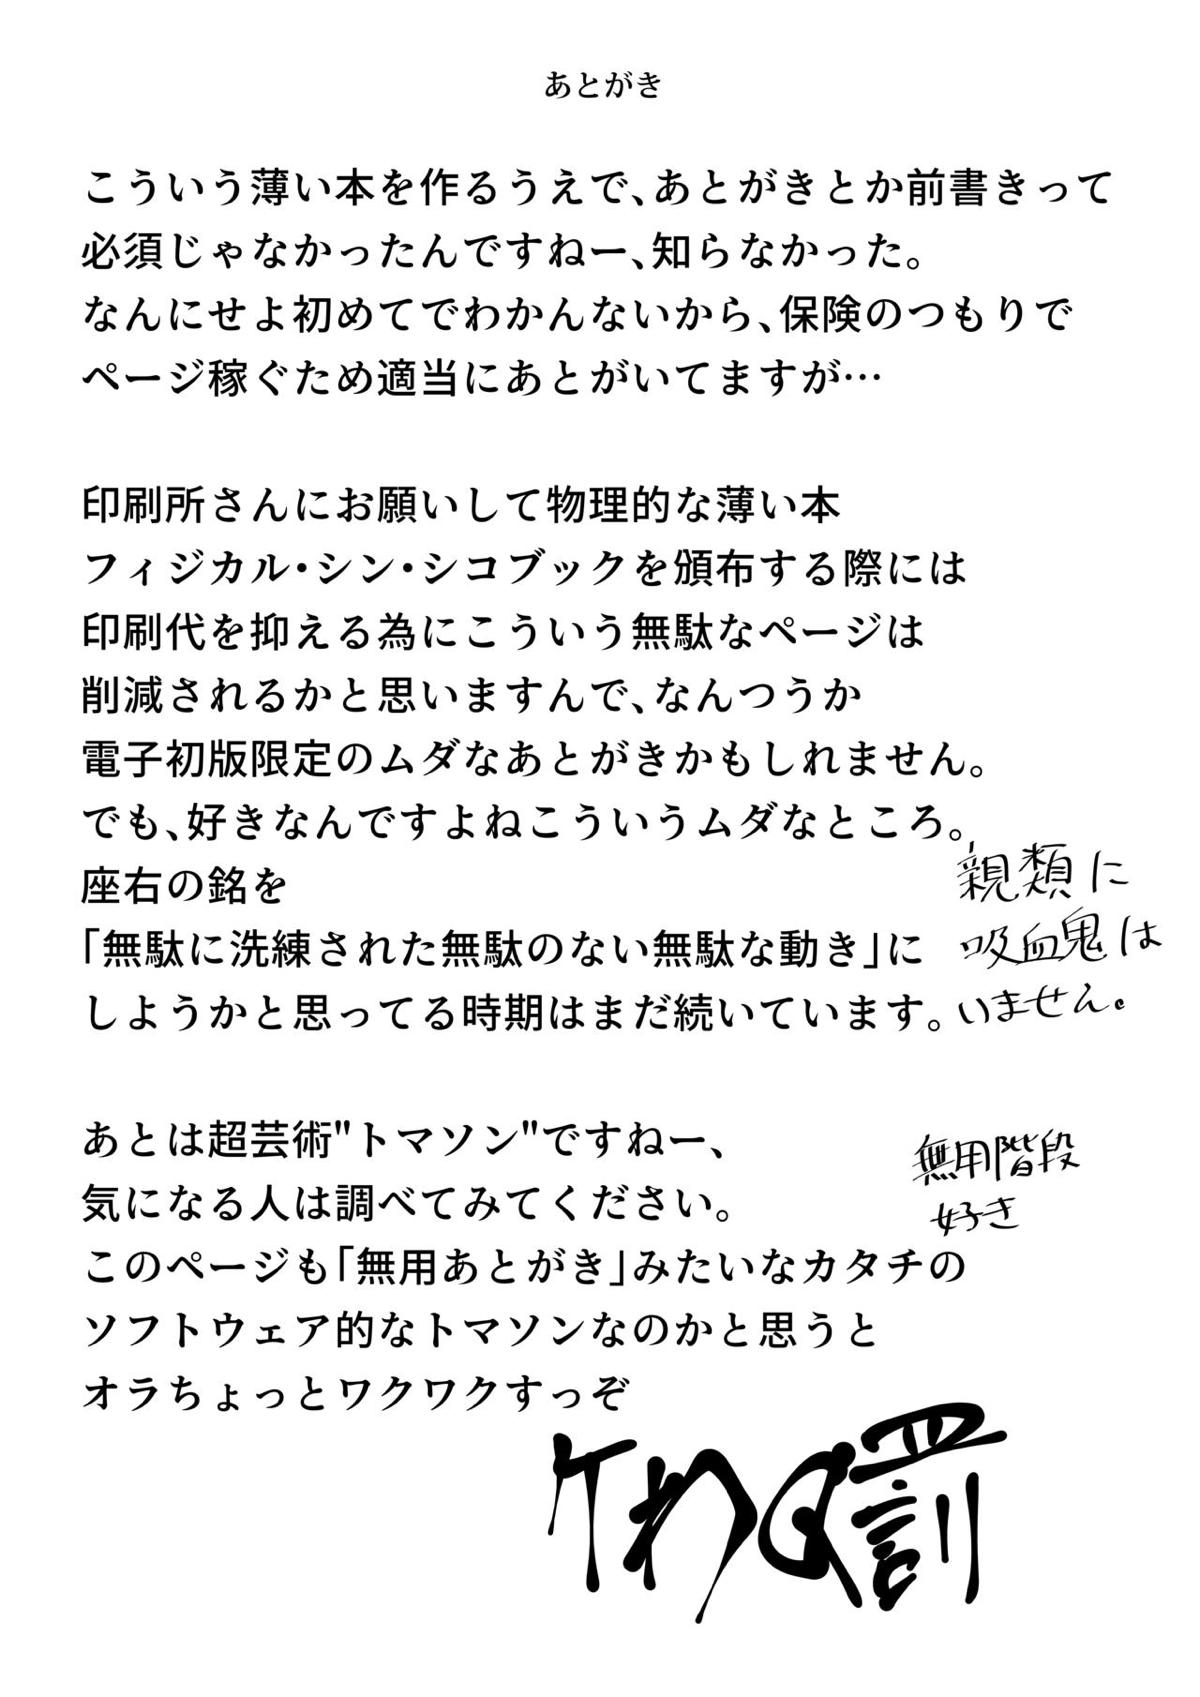 あとがき
こういう薄い本を作るうえで､あとがきとか前書きって
必須じゃなかったんですねー､知らなかった｡
なんにせよ初めてでわかんないから､保険のつもりで
ページ稼ぐため適当にあとがいてますが…
印刷所さんにお願いして物理的な薄い本
フィジカル･シン･シコブックを頒布する際には
印刷代を抑える為にこういう無駄なページは
削減されるかと思いますんで､なんつうか
電子初版限定のムダなあとがきかもしれません｡
でも､好きなんですよねこういうムダなところ｡
座右の銘を
｢無駄に洗練された無駄のない無駄な動き｣に
しようかと思ってる時期はまだ続いています｡
親類に
吸血鬼は
いません。
あとは超芸術"トマソン"ですねー､
気になる人は調べてみてください｡
無用階段
好き
このページも｢無用あとがき｣みたいなカタチの
ソフトウェア的なトマソンなのかと思うと
オラちょっとワクワクすっぞ